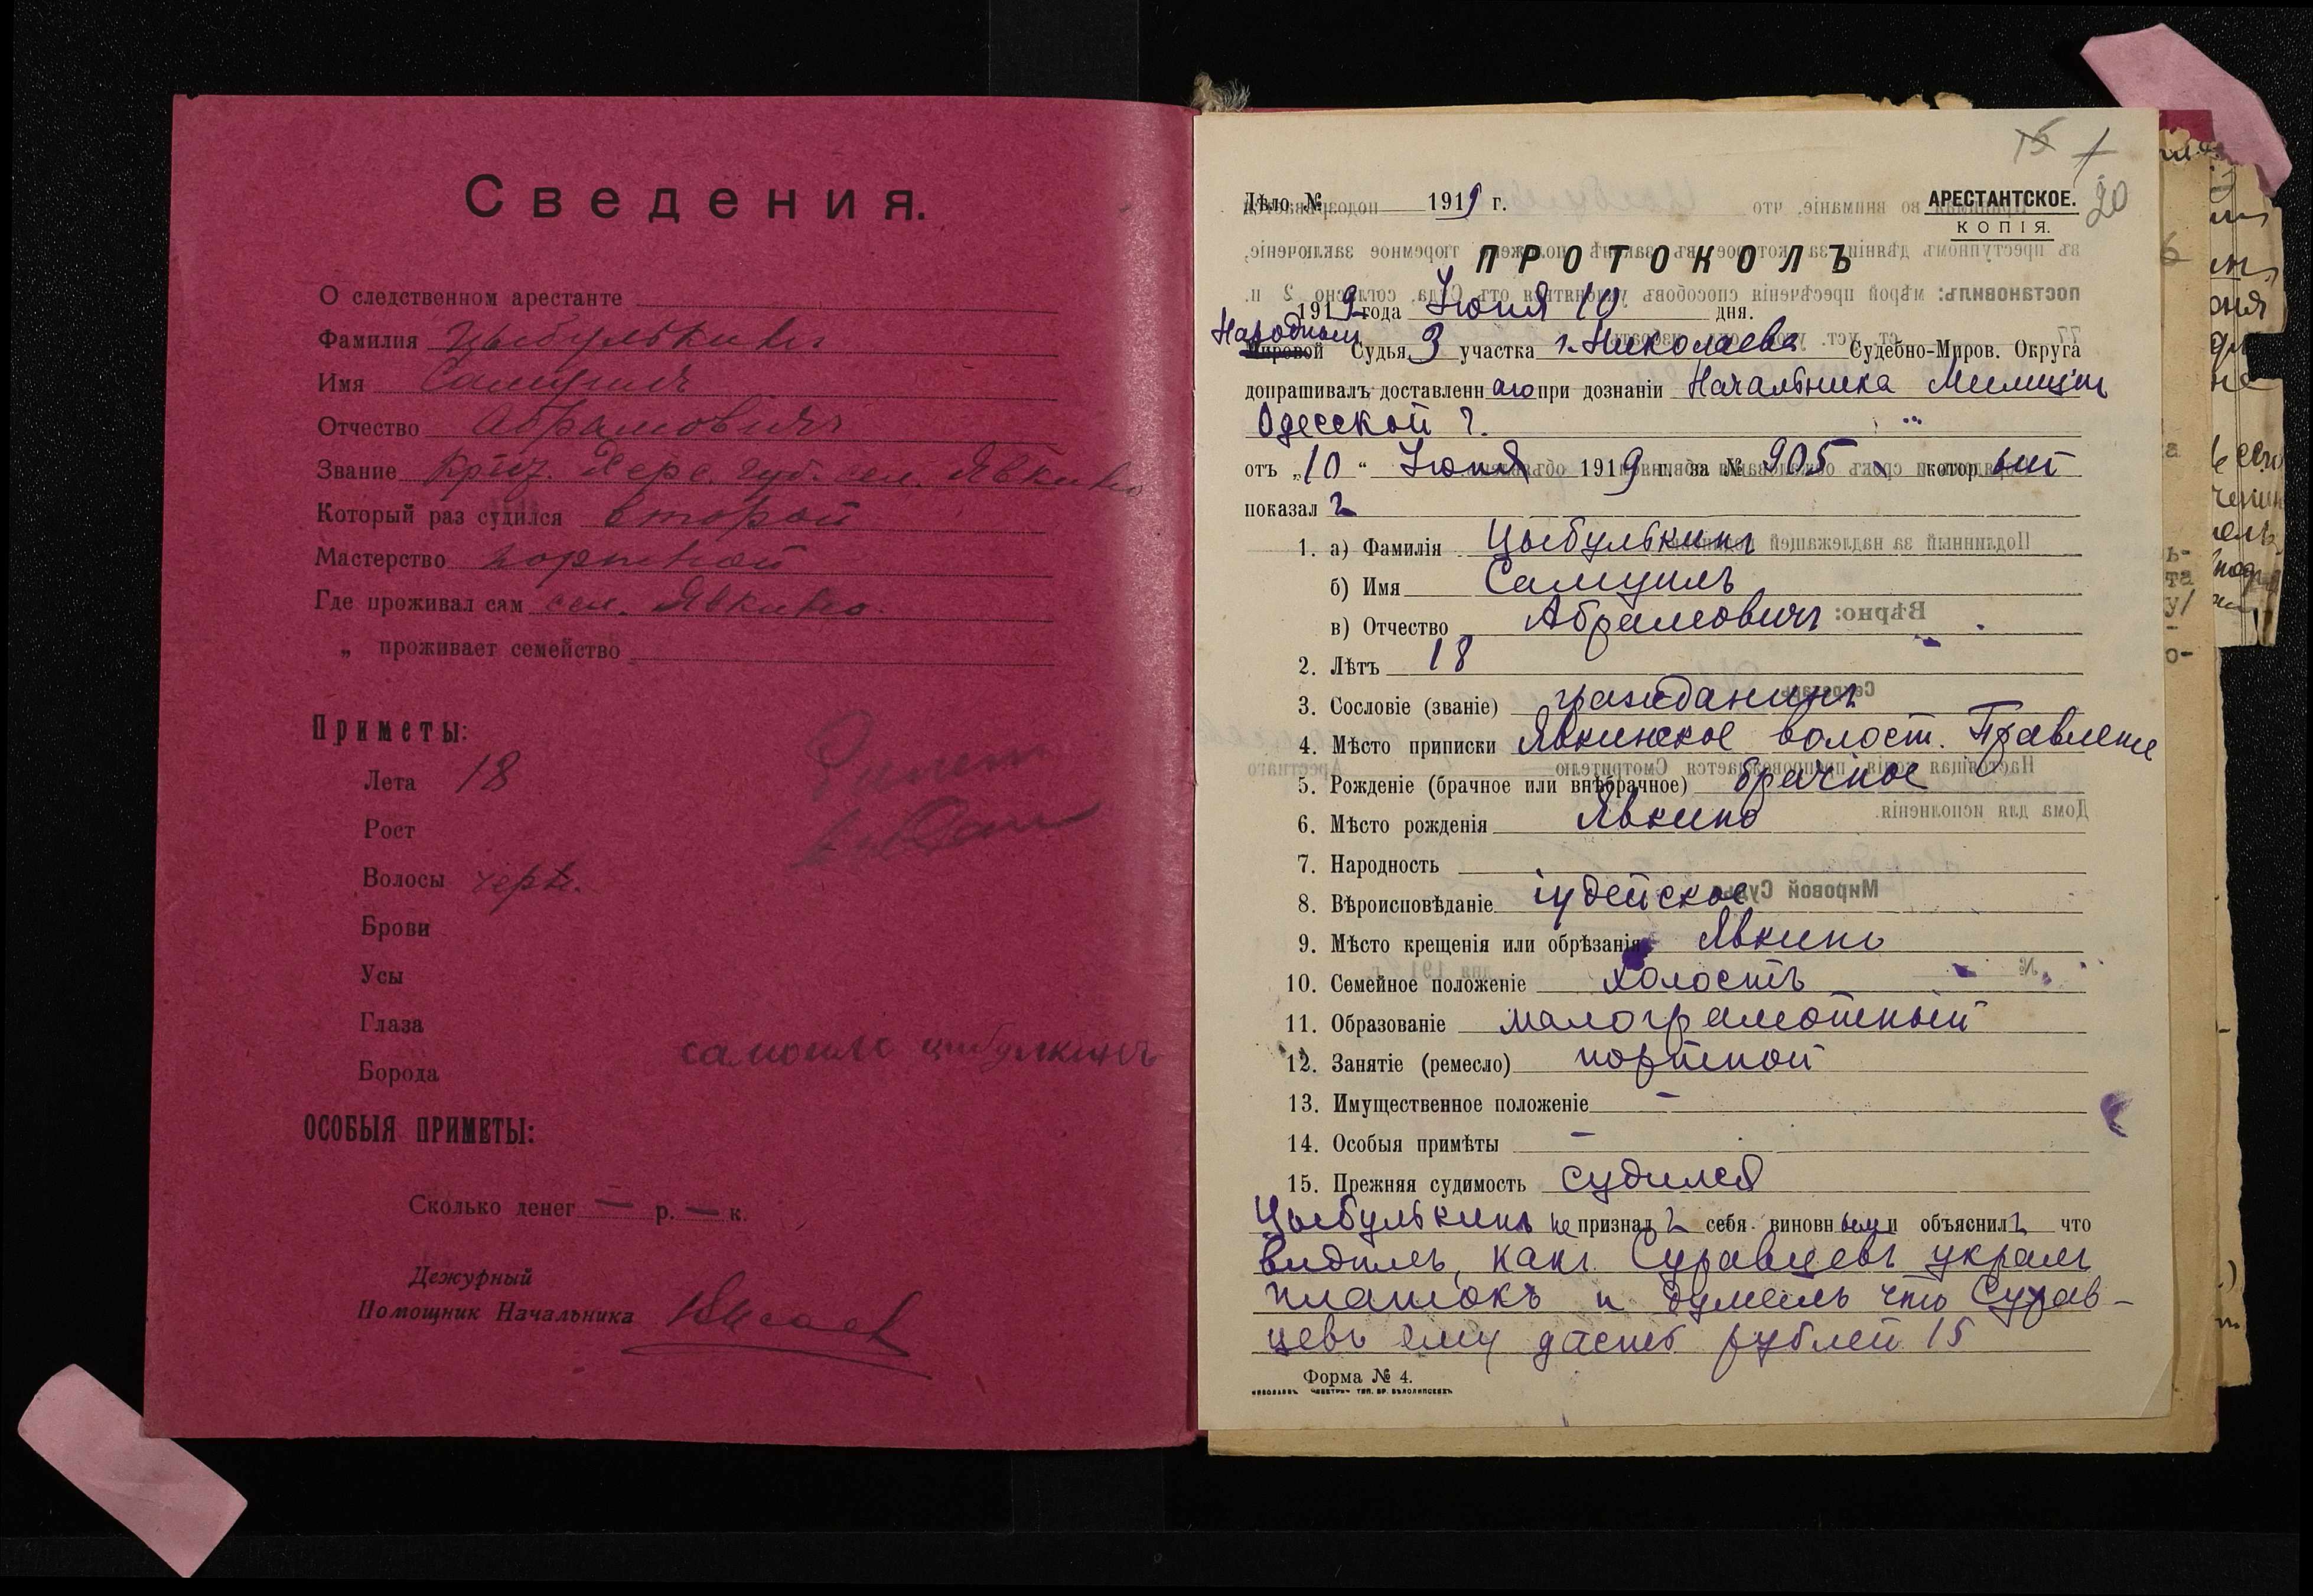 Сведения.
О следственном арестанте
Фамилия Цыбулькинъ
Имя Самуилъ
Отчество Абрамовичъ
Звание Херс. губ. сел. Явкино
Который раз судился второй
Мастерство портной
Где проживал сам сел. Явкино.
„ проживает семейство
Приметы:
Лета 18
Рост
Волосы черн.
Брови
Усы
Глаза
Борода
самоилъ цибулкинъ
ОСОБЫЯ ПРИМЕТЫ:
Сколько денег — р. — к.
Дежурный
Помощник Начальника
15 1
20
Дѣло № 1919 г. АРЕСТАНТСКОЕ.
КОПІЯ.
ПРОТОКОЛЪ
1919 года Іюня 10 дня.
Народный
Мировой Судья 3 участка г. Николаева Судебно-Миров. Округа
допрашивалъ доставленнаго при дознаніи Начальника Милиціи
Одесской г.
отъ „10“ Іюня 1919 г. за № 905 который
показалъ
1. а) Фамилія Цыбулькинъ
б) Имя Самуилъ
в) Отчество Абрамовичъ
2. Лѣтъ 18
3. Сословіе (званіе) гражданинъ
4. Мѣсто приписки Явкинское волост. Правление
5. Рожденіе (брачное или внѣбрачное) брачное
6. Мѣсто рожденія Явкино
7. Народность
8. Вѣроисповѣданіе іудейское
9. Мѣсто крещенія или обрѣзанія Явкино
10. Семейное положеніе холостъ
11. Образованіе малограмотный
12. Занятіе (ремесло) портной
13. Имущественное положеніе –
14. Особыя примѣты –
15. Прежняя судимость судился
Цыбулькинъ не призналъ себя виновным и объяснилъ что
видѣлъ, какъ Суравцевъ укралъ
платокъ и думалъ что Сурав-
цевъ ему дастъ рублей 15
Форма № 4.